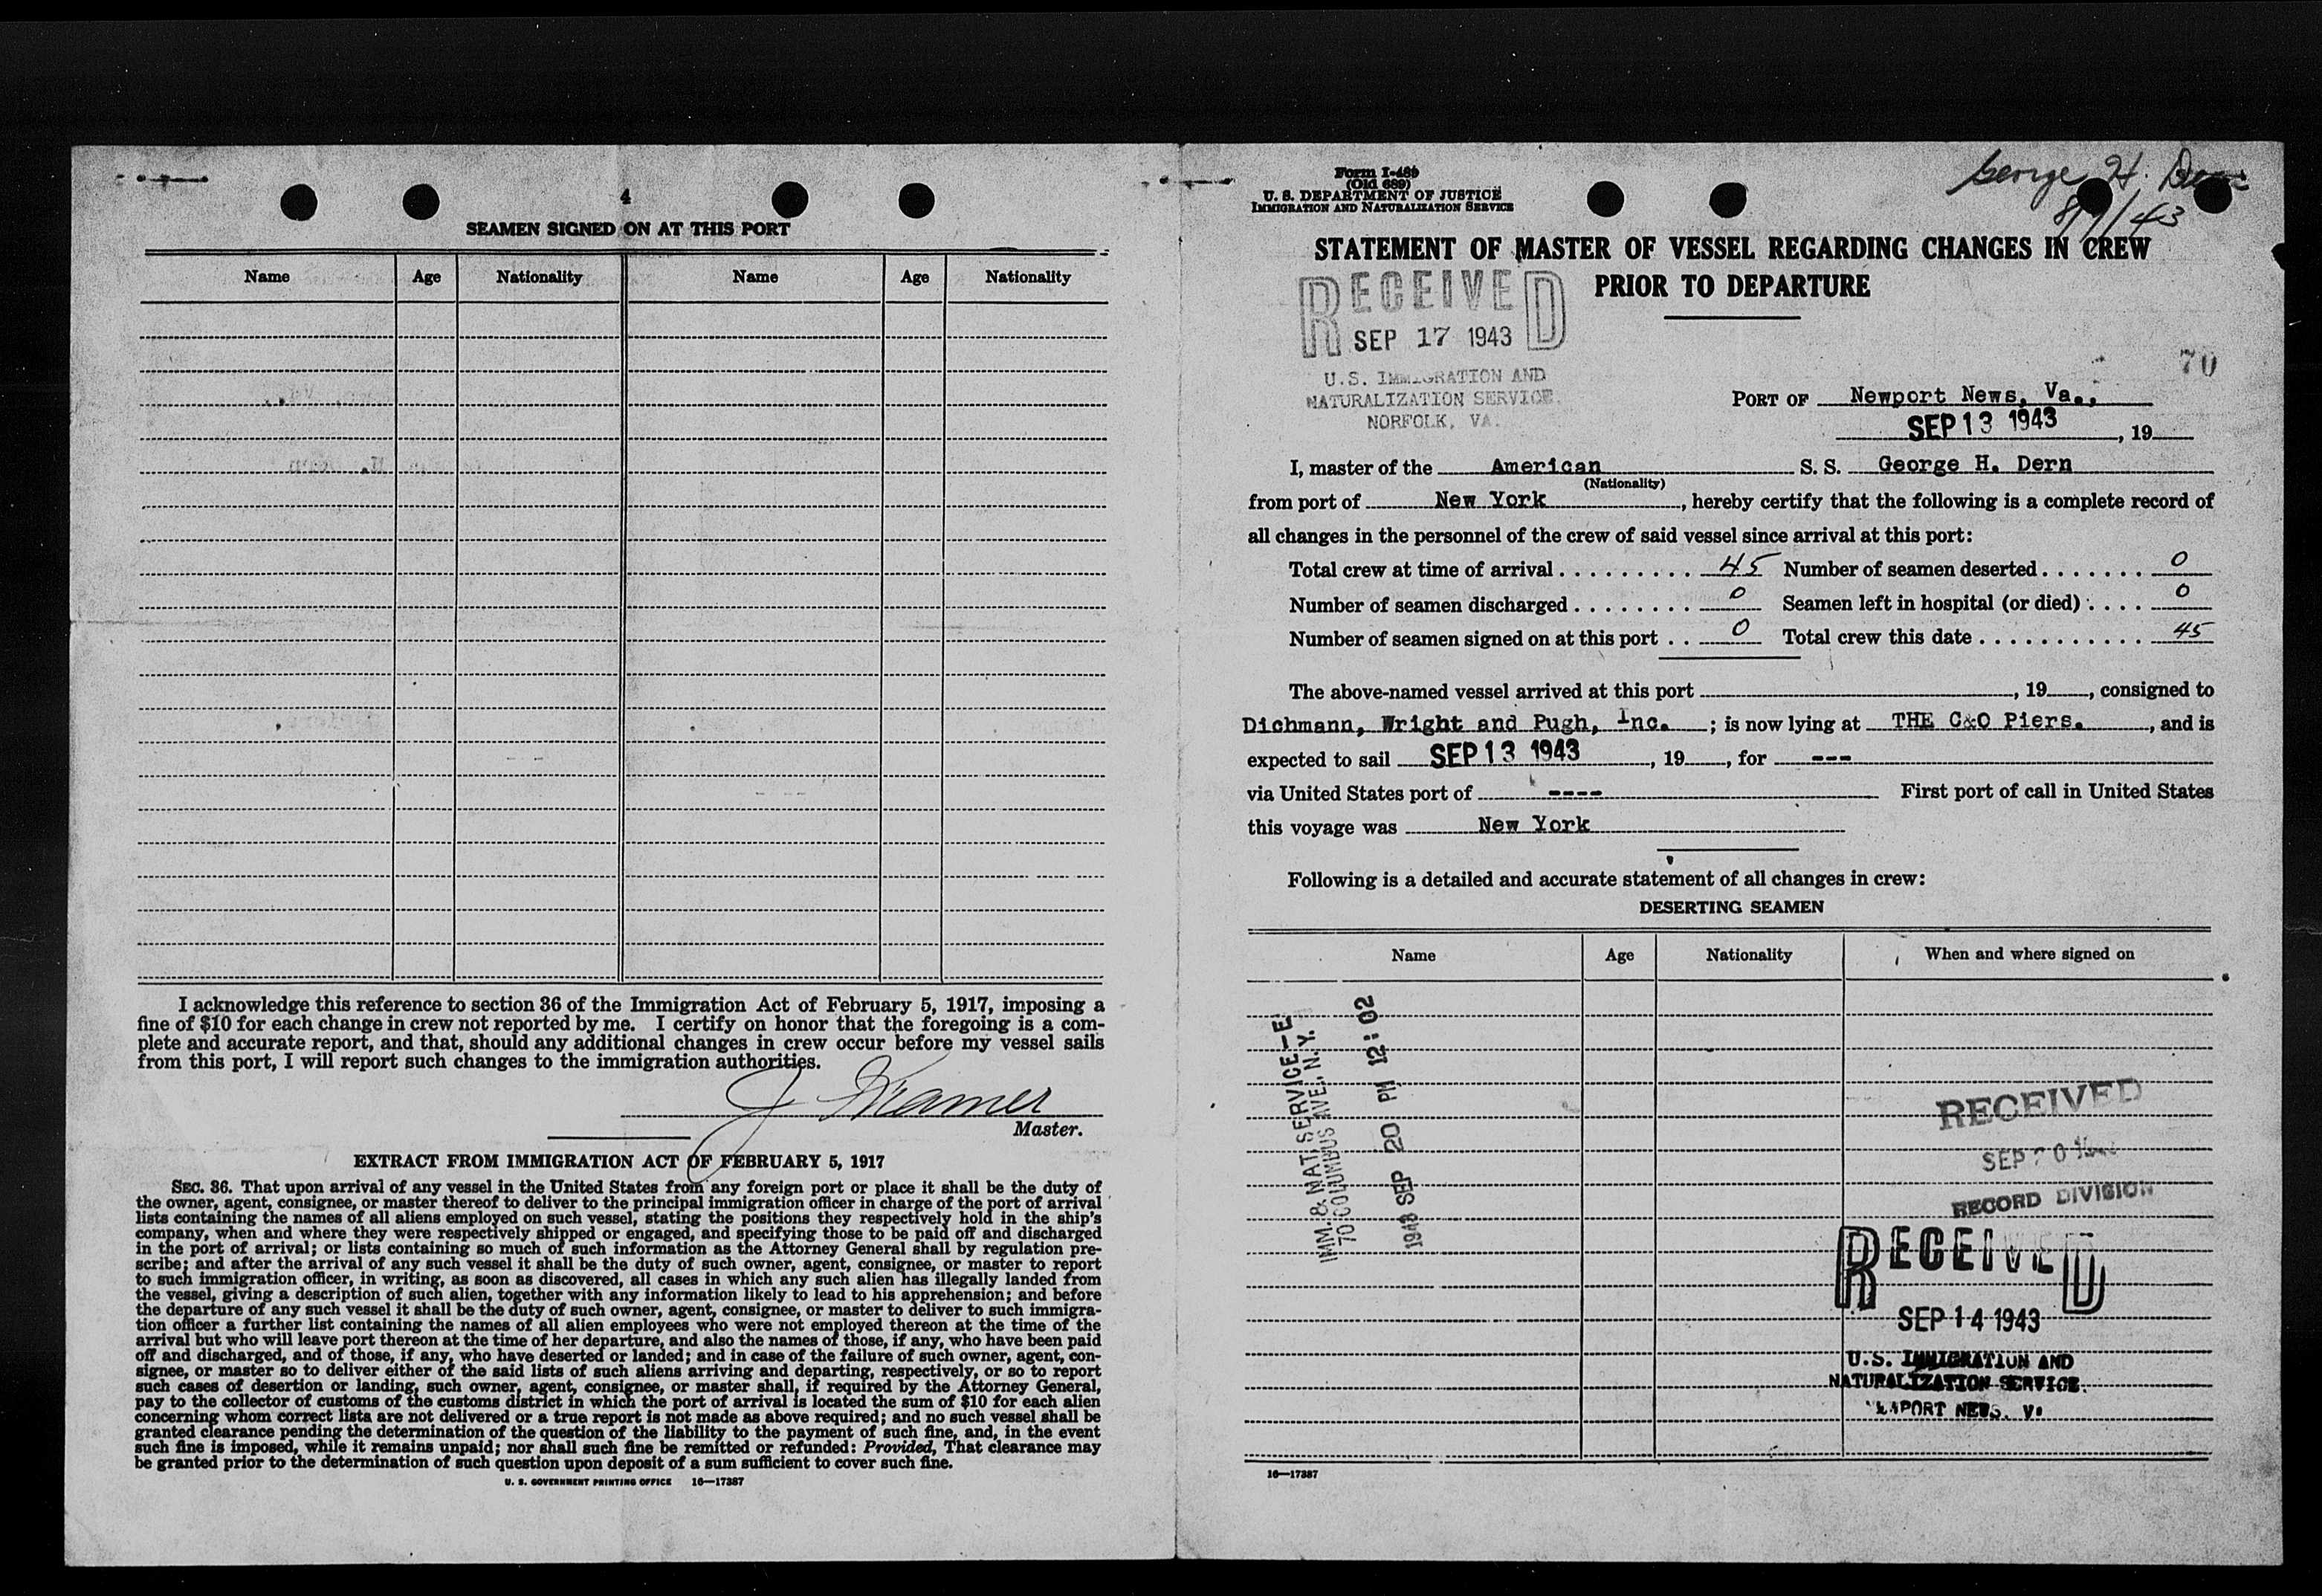 4
SEAMEN SIGNED ON AT THIS PORT
Name Age Nationality Name Age Nationality
I acknowledge this reference to section 36 of the Immigration Act of February 5, 1917, imposing a
fine of $10 for each change in crew not reported by me. I certify on honor that the foregoing is a com-
plete and accurate report, and that, should any additional changes in crew occur before my vessel sails
from this port, I will report such changes to the immigration authorities.
J
Master.
EXTRACT FROM IMMIGRATION ACT OF FEBRUARY 5, 1917
SEC. 36. That upon arrival of any vessel in the United States from any foreign port or place it shall be the duty of
the owner, agent, consignee, or master thereof to deliver to the principal immigration officer in charge of the port of arrival
lists containing the names of all aliens employed on such vessel, stating the positions they respectively hold in the ship's
company, when and where they were respectively shipped or engaged, and specifying those to be paid off and discharged
in the port of arrival; or lists containing so much of such information as the Attorney General shall by regulation pre-
scribe; and after the arrival of any such vessel it shall be the duty of such owner, agent, consignee, or master to report
to such immigration officer, in writing, as soon as discovered, all cases in which any such alien has illegally landed from
the vessel, giving a description of such alien, together with any information likely to lead to his apprehension; and before
the departure of any such vessel it shall be the duty of such owner, agent, consignee, or master to deliver to such immigra-
tion officer a further list containing the names of all alien employees who were not employed thereon at the time of the
arrival but who will leave port thereon at the time of her departure, and also the names of those, if any, who have been paid
off and discharged, and of those, if any, who have deserted or landed; and in case of the failure of such owner, agent, con-
signee, or master so to deliver either of the said lists of such aliens arriving and departing, respectively, or so to report
such cases of desertion or landing, such owner, agent, consignee, or master shall, if required by the Attorney General,
pay to the collector of customs of the customs district in which the port of arrival is located the sum of $10 for each alien
concerning whom correct lists are not delivered or a true report is not made as above required; and no such vessel shall be
granted clearance pending the determination of the question of the liability to the payment of such fine, and, in the event
such fine is imposed, while it remains unpaid; nor shall such fine be remitted or refunded: Provided, That clearance may
be granted prior to the determination of such question upon deposit of a sum sufficient to cover such fine.
U. S. GOVERNMENT PRINTING OFFICE 16—17387
Form I-489
(Old 689)
U. S. DEPARTMENT OF JUSTICE
IMMIGRATION AND NATURALIZATION SERVICE
George H. Dern
STATEMENT OF MASTER OF VESSEL REGARDING CHANGES IN CREW
PRIOR TO DEPARTURE
RECEIVED
SEP 17 1943
U.S. IMMIGRATION AND
NATURALIZATION SERVICE
NORFOLK, VA.
70
PORT OF Newport News, Va.,
SEP 13 1943, 19
I, master of the American S. S. George H. Dern
(Nationality)
from port of New York, hereby certify that the following is a complete record of
all changes in the personnel of the crew of said vessel since arrival at this port:
Total crew at time of arrival . . . . . . . . . . 45 Number of seamen deserted . . . . . . . 0
Number of seamen discharged . . . . . . . . 0 Seamen left in hospital (or died) . . . . 0
Number of seamen signed on at this port . . 0 Total crew this date . . . . . . . . . . . . 45
The above-named vessel arrived at this port , 19 , consigned to
Dichmann, Wright and Pugh, Inc. ; is now lying at THE C&O Piers. , and is
expected to sail SEP 13 1943, 19 , for ---
via United States port of ---- First port of call in United States
this voyage was New York
Following is a detailed and accurate statement of all changes in crew:
DESERTING SEAMEN
Name Age Nationality When and where signed on
IMM. & NAT. SERVICE-E
70 COLUMBUS AVE., N. Y.
1943 SEP 20 PM 12:02
RECEIVED
SEP 20
RECORD DIVISION
RECEIVED
SEP 14 1943
U.S. IMMIGRATION AND
NATURALIZATION SERVICE.
NEWS, V
16—17387